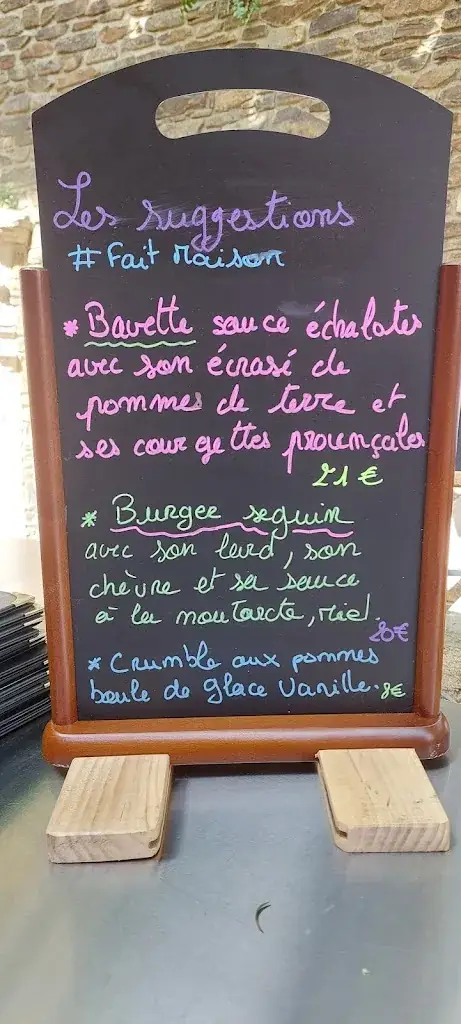 Les suggestions
# Fait Maison
* Bavette sauce échalotes
avec son écrasé de
pommes de terre et
ses courgettes provençales
21 €
* Burger seguin
avec son lard, son
chèvre et sa sauce
à la moutarde, miel.
20€
* Crumble aux pommes
boule de glace Vanille. 8€